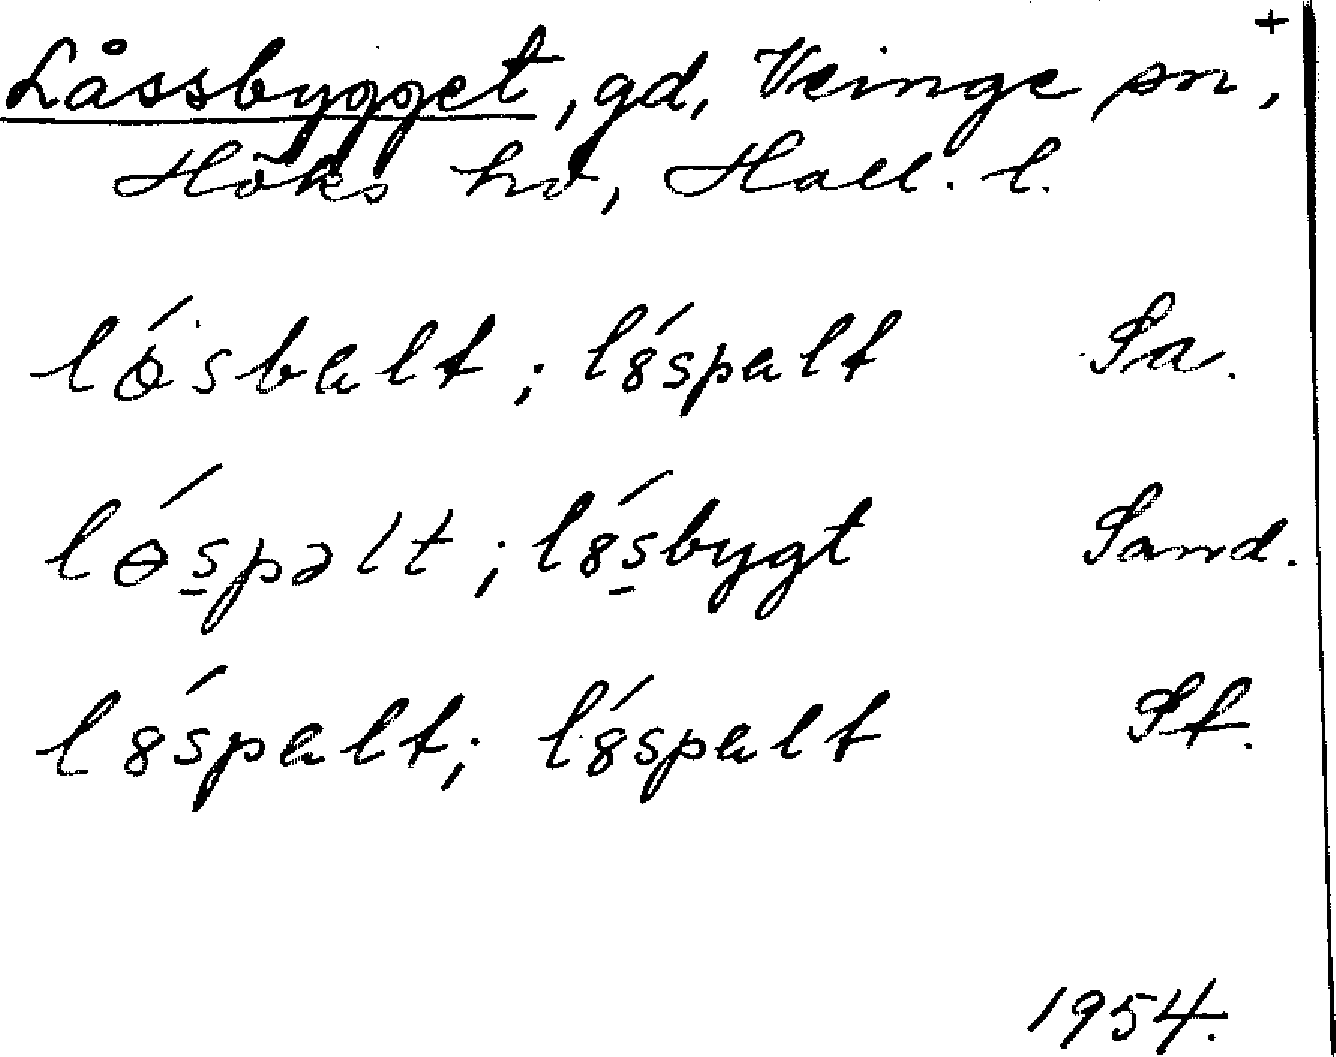 +
Låssbygget, gd, Veinge sn,
Höks hd, Hall. l.
lɵ́sbalt; l8́spalt Sa.
lɵ́s̱pəlt; l8́s̱bygt Sand.
l8́spalt; l8́spalt St.
1954.